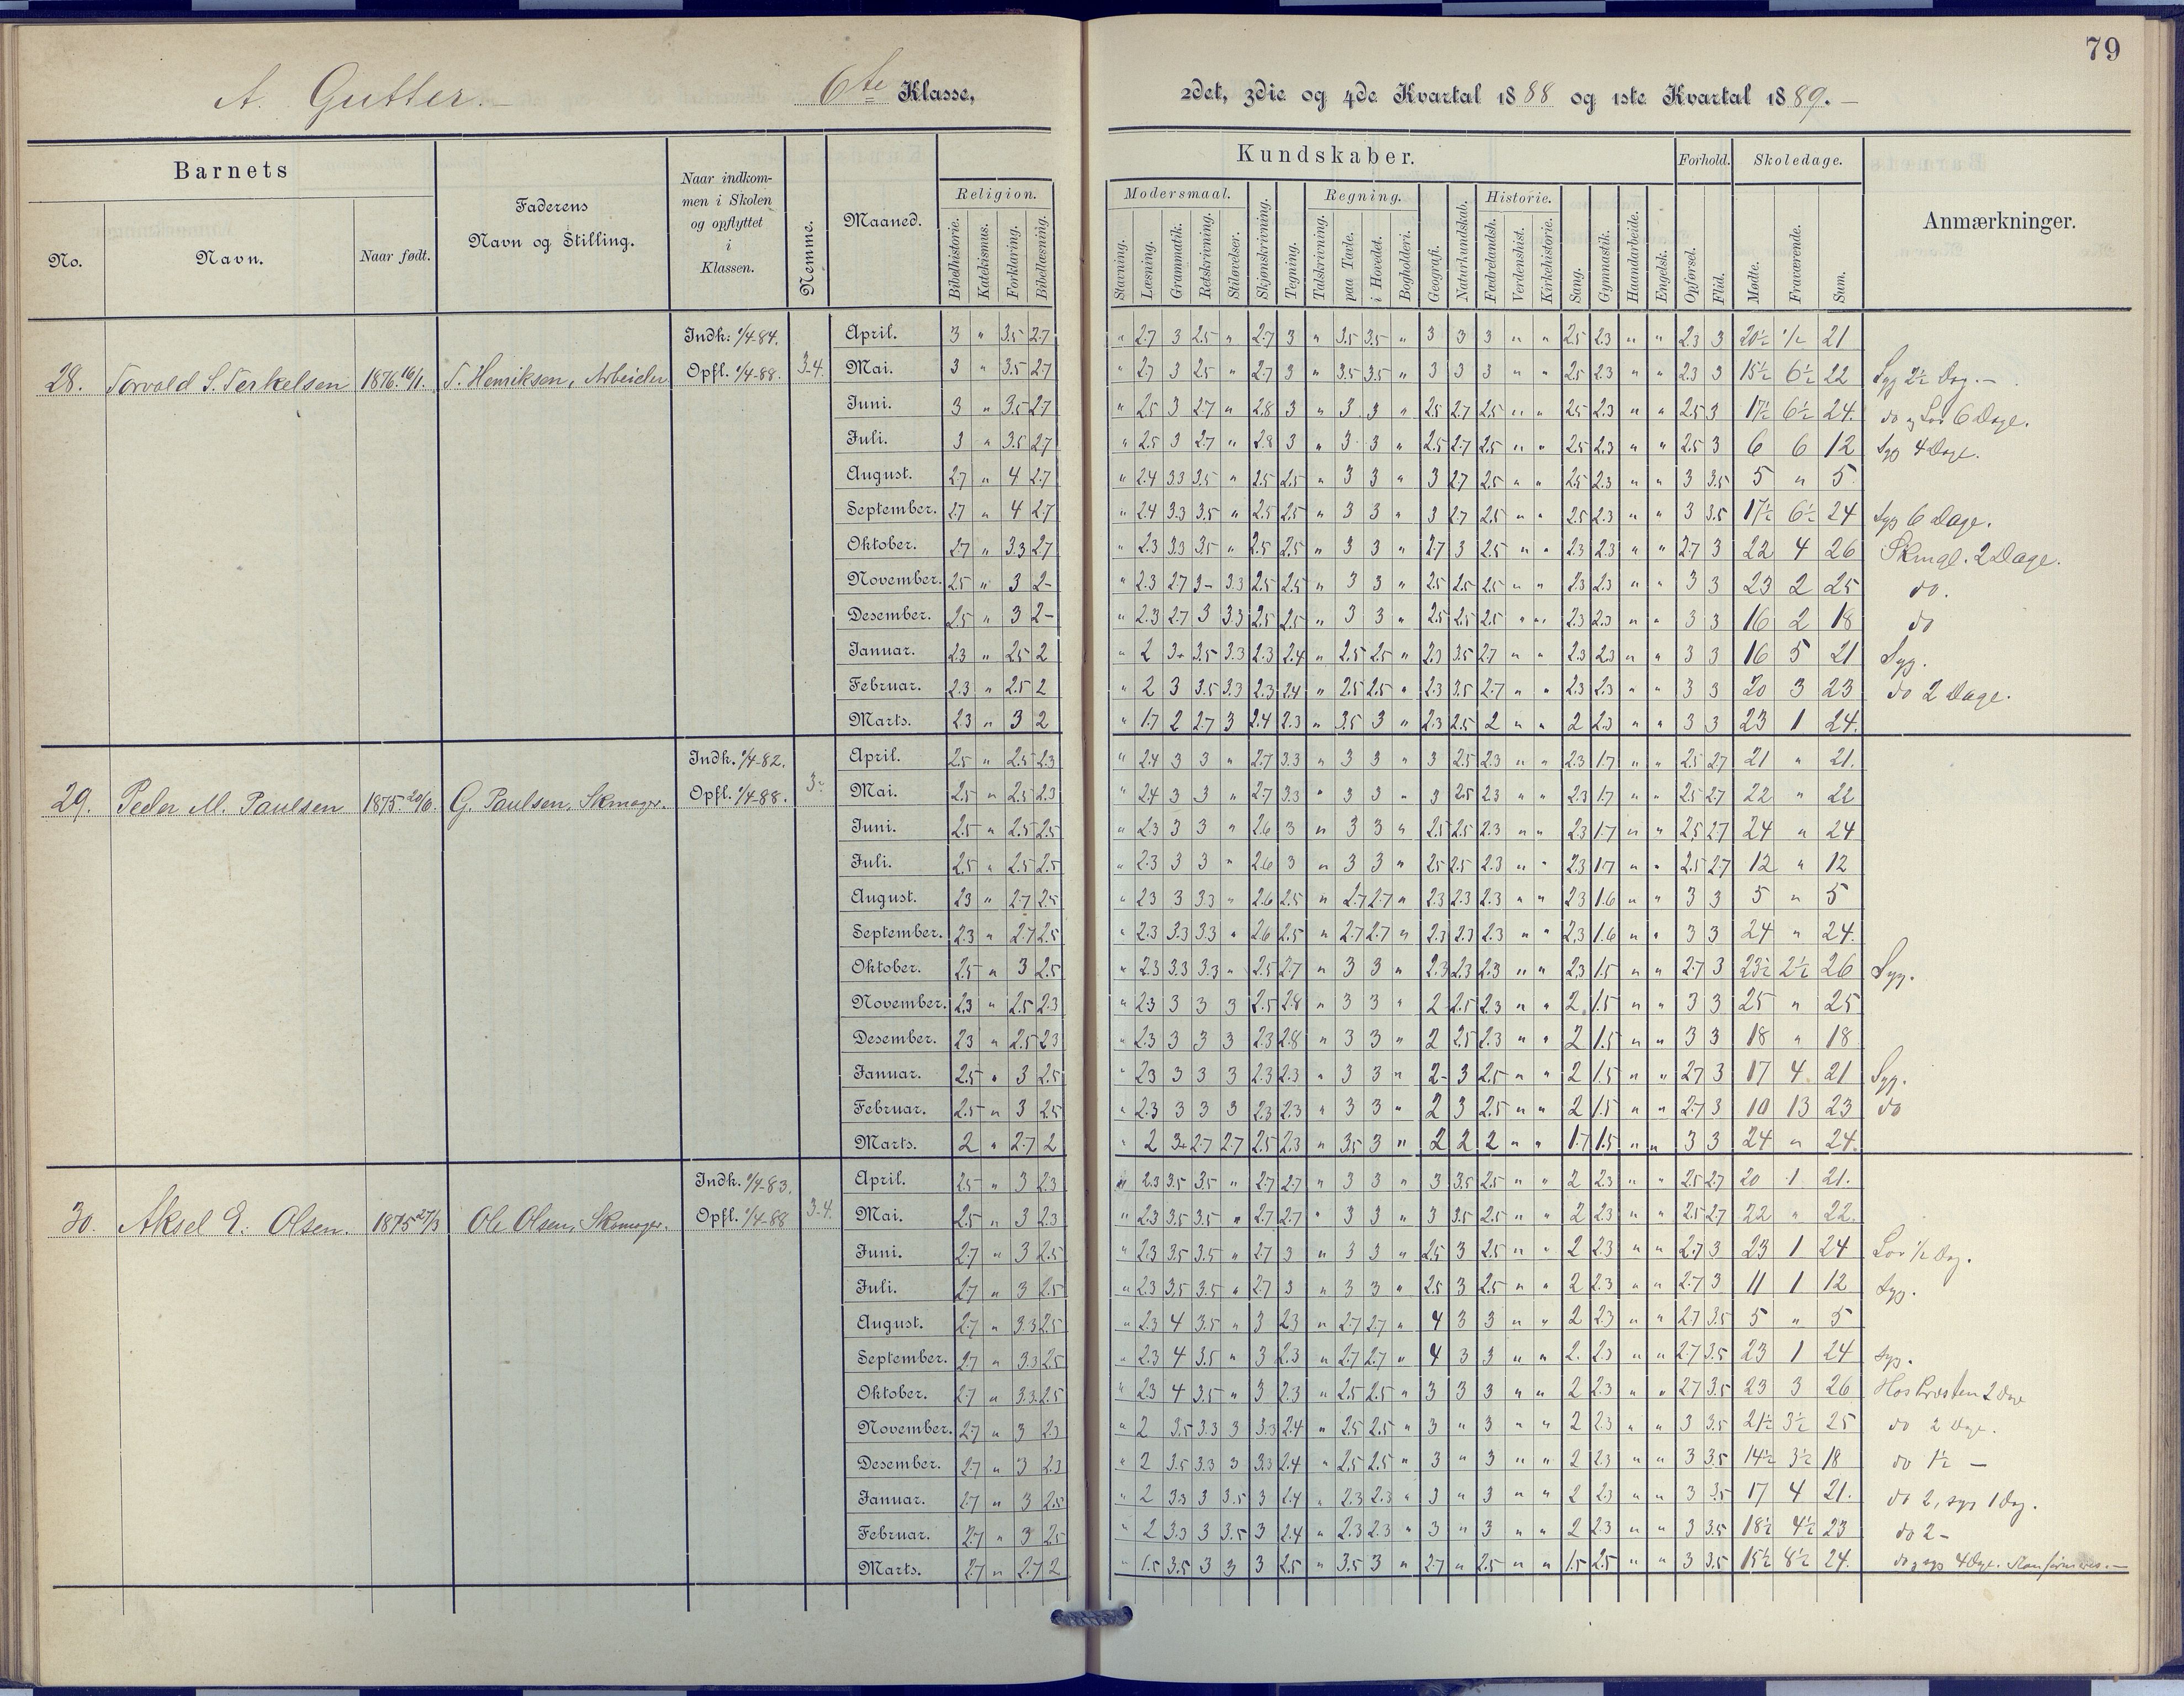 79
A. Gutter.
6te Klasse,
2det, 3die og 4de Kvartal 1888 og 1ste Kvartal 1889.
Barnets
No.
Navn.
Naar født.
Faderens
Navn og Stilling.
Naar indkom-
men i Skolen
og opflyttet
i
Klassen.
Nemme.
Maaned.
Religion.
Bibelhistorie.
Katekismus.
Forklaring.
Bibellæsning.
Kundskaber.
Modersmaal.
Stavning.
Læsning.
Grammatik.
Retskrivning.
Stiløvelser.
Skjønskrivning.
Tegning.
Regning.
Talskrivning.
paa Tavle.
i Hovedet.
Bogholderi.
Geografi.
Naturkundskab.
Historie.
Fædrelandsh.
Verdenshist.
Kirkehistorie.
Sang.
Gymnastik.
Haandarbeide.
Engelsk.
Forhold.
Opførsel.
Flid.
Skoledage.
Mødte.
Fraværende.
Sum.
Anmærkninger.
28. Torvald S. Terkelsen 1876 16/1. T. Henriksen, Arbeider Indk. 1/4-84. Opfl. 1/4-88. 3-4.
April. 3 " 3.5 2.7 " 2.7 3 2.5 " 2.7 3 " 3.5 3.5 " 3 3 3 " " 2.5 2.3 " " 2.3 3 20½ 1/2 21
Mai. 3 " 3.5 2.7 " 2.7 3 2.5 " 2.7 3 " 3.5 3.5 " 3 3 3 " " 2.5 2.3 " " 2.3 3 15½ 6½ 22 Syg 2½ Dag.
Juni. 3 " 3.5 2.7 " 2.5 3 2.7 " 2.8 3 " 3 3 " 2.5 2.7 2.5 " " 2.5 2.3 " " 2.5 3 17½ 6½ 24. do og Lov 6 Dage.
Juli. 3 " 3.5 2.7 " 2.5 3 2.7 " 2.8 3 " 3 3 " 2.5 2.7 2.5 " " 2.5 2.3 " " 2.5 3 6 6 12 Syg 4 Dage.
August. 2.7 " 4 2.7 " 2.4 3.3 3.5 " 2.5 2.5 " 3 3 " 3 2.7 2.5 " " 2.5 2.3 " " 3 3.5 5 " 5
September. 2.7 " 4 2.7 " 2.4 3.3 3.5 " 2.5 2.5 " 3 3 " 3 2.7 2.5 " " 2.5 2.3 " " 3 3.5 17½ 6½ 24 Syg 6 Dage.
Oktober. 2.7 " 3.3 2.7 " 2.3 3.3 3.5 " 2.5 2.5 " 3 3 " 2.7 3 2.5 " " 2.3 2.3 " " 2.7 3 22 4 26 Skmgl. 2 Dage.
November. 2.5 " 3 2- " 2.3 2.7 3- 3.3 2.5 2.5 " 3 3 " 2.5 2.5 2.5 " " 2.3 2.3 " " 3 3 23 2 25 do.
Desember. 2.5 " 3 2- " 2.3 2.7 3 3.3 2.5 2.5 " 3 3 " 2.5 2.5 2.5 " " 2.3 2.3 " " 3 3 16 2 18 do
Januar. 2.3 " 2.5 2 " 2 3+ 3.5 3.3 2.3 2.4 " 2.5 2.5 " 2.3 3.5 2.7 " " 2.3 2.3 " " 3 3 16 5 21 Syg.
Februar. 2.3 " 2.5 2 " 2 3 3.5 3.3 2.3 2.4 " 2.5 2.5 " 2.3 3.5 2.7 " " 2.3 2.3 " " 3 3 20 3 23 do 2 Dage.
Marts. 2.3 " 3 2 " 1.7 2 2.7 3 2.4 2.3 " 3.5 3 " 2.3 2.5 2 " " 2 2.3 " " 3 3 23 1 24.
29. Peder M. Paulsen 1875 G. Paulsen, Skmager. Indk. 1/4-82. Opfl. 1/4-88. 3-
April. 2.5 " 2.5 2.3 " 2.4 3 3 " 2.7 3.3 " 3 3 " 3 2.5 2.3 " " 2.3 1.7 " " 2.5 2.7 21 " 21.
Mai. 2.5 " 2.5 2.3 " 2.4 3 3 " 2.7 3.3 " 3 3 " 3 2.5 2.3 " " 2.3 1.7 " " 2.5 2.7 22 " 22
Juni. 2.5 " 2.5 2.5 " 2.3 3 3 " 2.6 3 " 3 3 " 2.5 2.5 2.3 " " 2.3 1.7 " " 2.5 2.7 24 " 24
Juli. 2.5 " 2.5 2.5 " 2.3 3 3 " 2.6 3 " 3 3 " 2.5 2.5 2.3 " " 2.3 1.7 " " 2.5 2.7 12 " 12
August. 2.3 " 2.7 2.5 " 2.3 3 3.3 " 2.6 2.5 " 2.7 2.7 " 2.3 2.3 2.3 " " 2.3 1.6 " " 3 3 5 " 5
September. 2.3 " 2.7 2.5 " 2.3 3.3 3.3 " 2.6 2.5 " 2.7 2.7 " 2.3 2.3 2.3 " " 2.3 1.6 " " 3 3 24 " 24.
Oktober. 2.5 " 3 2.5 " 2.3 3.3 3.3 " 2.5 2.7 " 3 3 " 2.3 2.3 2.3 " " 2.3 1.5 " " 2.7 3 23½ 2½ 26 Syg.
November. 2.3 " 2.5 2.3 " 2.3 3 3 3 2.5 2.8 " 3 3 " 2 2.5 2.3 " " 2 1.5 " " 3 3 25 " 25
Desember. 2.3 " 2.5 2.3 " 2.3 3 3 3 2.3 2.8 " 3 3 " 2 2.5 2.3 " " 2 1.5 " " 3 3 18 " 18
Januar. 2.5 " 3 2.5 " 2.3 3 3 3 2.3 2.3 " 3 3 " 2- 3 2.5 " " 2 1.5 " " 2.7 3 17 4 21 Syg.
Februar. 2.5 " 3 2.5 " 2.3 3 3 3 2.3 2.3 " 3 3 " 2 3 2.5 " " 2 1.5 " " 2.7 3 10 13 23 do
Marts. 2 " 2.7 2 " 2 3+ 2.7 2.7 2.5 2.3 " 3.5 3 " 2 2 2 " " 1.7 1.5 " " 3 3 24 " 24.
30. Aksel E. Olsen. 1875 27/3 Ole Olsen, Skomager. Indk. 1/4-83. Opfl. 1/4-88 3-4.
April. 2.5 " 3 2.3 " 2.3 3.5 3.5 " 2.7 2.7 " 3 3 " 3 3.5 2.5 " " 2 2.3 " " 2.5 2.7 20 1 21.
Mai. 2.5 " 3 2.3 " 2.3 3.5 3.5 " 2.7 2.7 " 3 3 " 3 3.5 2.5 " " 2 2.3 " " 2.5 2.7 22 " 22.
Juni. 2.7 " 3 2.5 " 2.3 3.5 3.5 " 2.7 3 " 3 3 " 2.5 3 2.5 " " 2 2.3 " " 2.7 3 23 1 24 Lov 1/2 Dag.
Juli. 2.7 " 3 2.5 " 2.3 3.5 3.5 " 2.7 3 " 3 3 " 2.5 3 2.5 " " 2 2.3 " " 2.7 3 11 1 12 Syg.
August. 2.7 " 3.3 2.5 " 2.3 4 3.5 " 3 2.3 " 2.7 2.7 " 4 3 3 " " 2 2.3 " " 2.7 3.5 5 " 5
September. 2.7 " 3.3 2.5 " 2.3 4 3.5 " 3 2.3 " 2.7 2.7 " 4 3 3 " " 2. 2.3 " " 2.7 3.5 23 1 24 Syg.
Oktober. 2.7 " 3.3 2.5 " 2.3 4 3.5 " 3 2.3 " 2.5 2.5 " 3 3 3 " " 2 2.3 " " 2.7 3.5 23 3 26 Hos Presten 2 Dage
November. 2.7 " 3 2.3 " 2 3.5 3.3 3 3.3 2.4 " 2.5 2.5 " 3 " 3 " " 2 2.3 " " 3 3.5 21½ 3½ 25 do 2 Dage.
Desember. 2.7 " 3 2.3 " 2 3.5 3.3 3 3.3 2.4 " 2.5 2.5 " 3 " 3 " " 2 2.3 " " 3 3.5 14½ 3½ 18 do 1½ —
Januar. 2.7 " 3 2.5 " 2 3.3 3 3.5 3 2.4 " 2.3 2.3 " 3 " 3 " " 2 2.3 " " 3 3.5 17 4 21. do 2, syg 1 Dag.
Februar. 2.7 " 3 2.5 " 2 3.3 3 3.5 3 2.4 " 2.3 2.3 " 3 " 3 " " 2 2.3 " " 3 3.5 18½ 4½ 23 do 2 -
Marts. 2.7 " 2.7 2 " 1.5 3.5 3 3 3 2.5 " 3.5 3 " 2.7 " 2.5 " " 1.5 2.5 " " 3 3.5 15½ 8½ 24. do og syg 4 Dage. Konfirmeres.